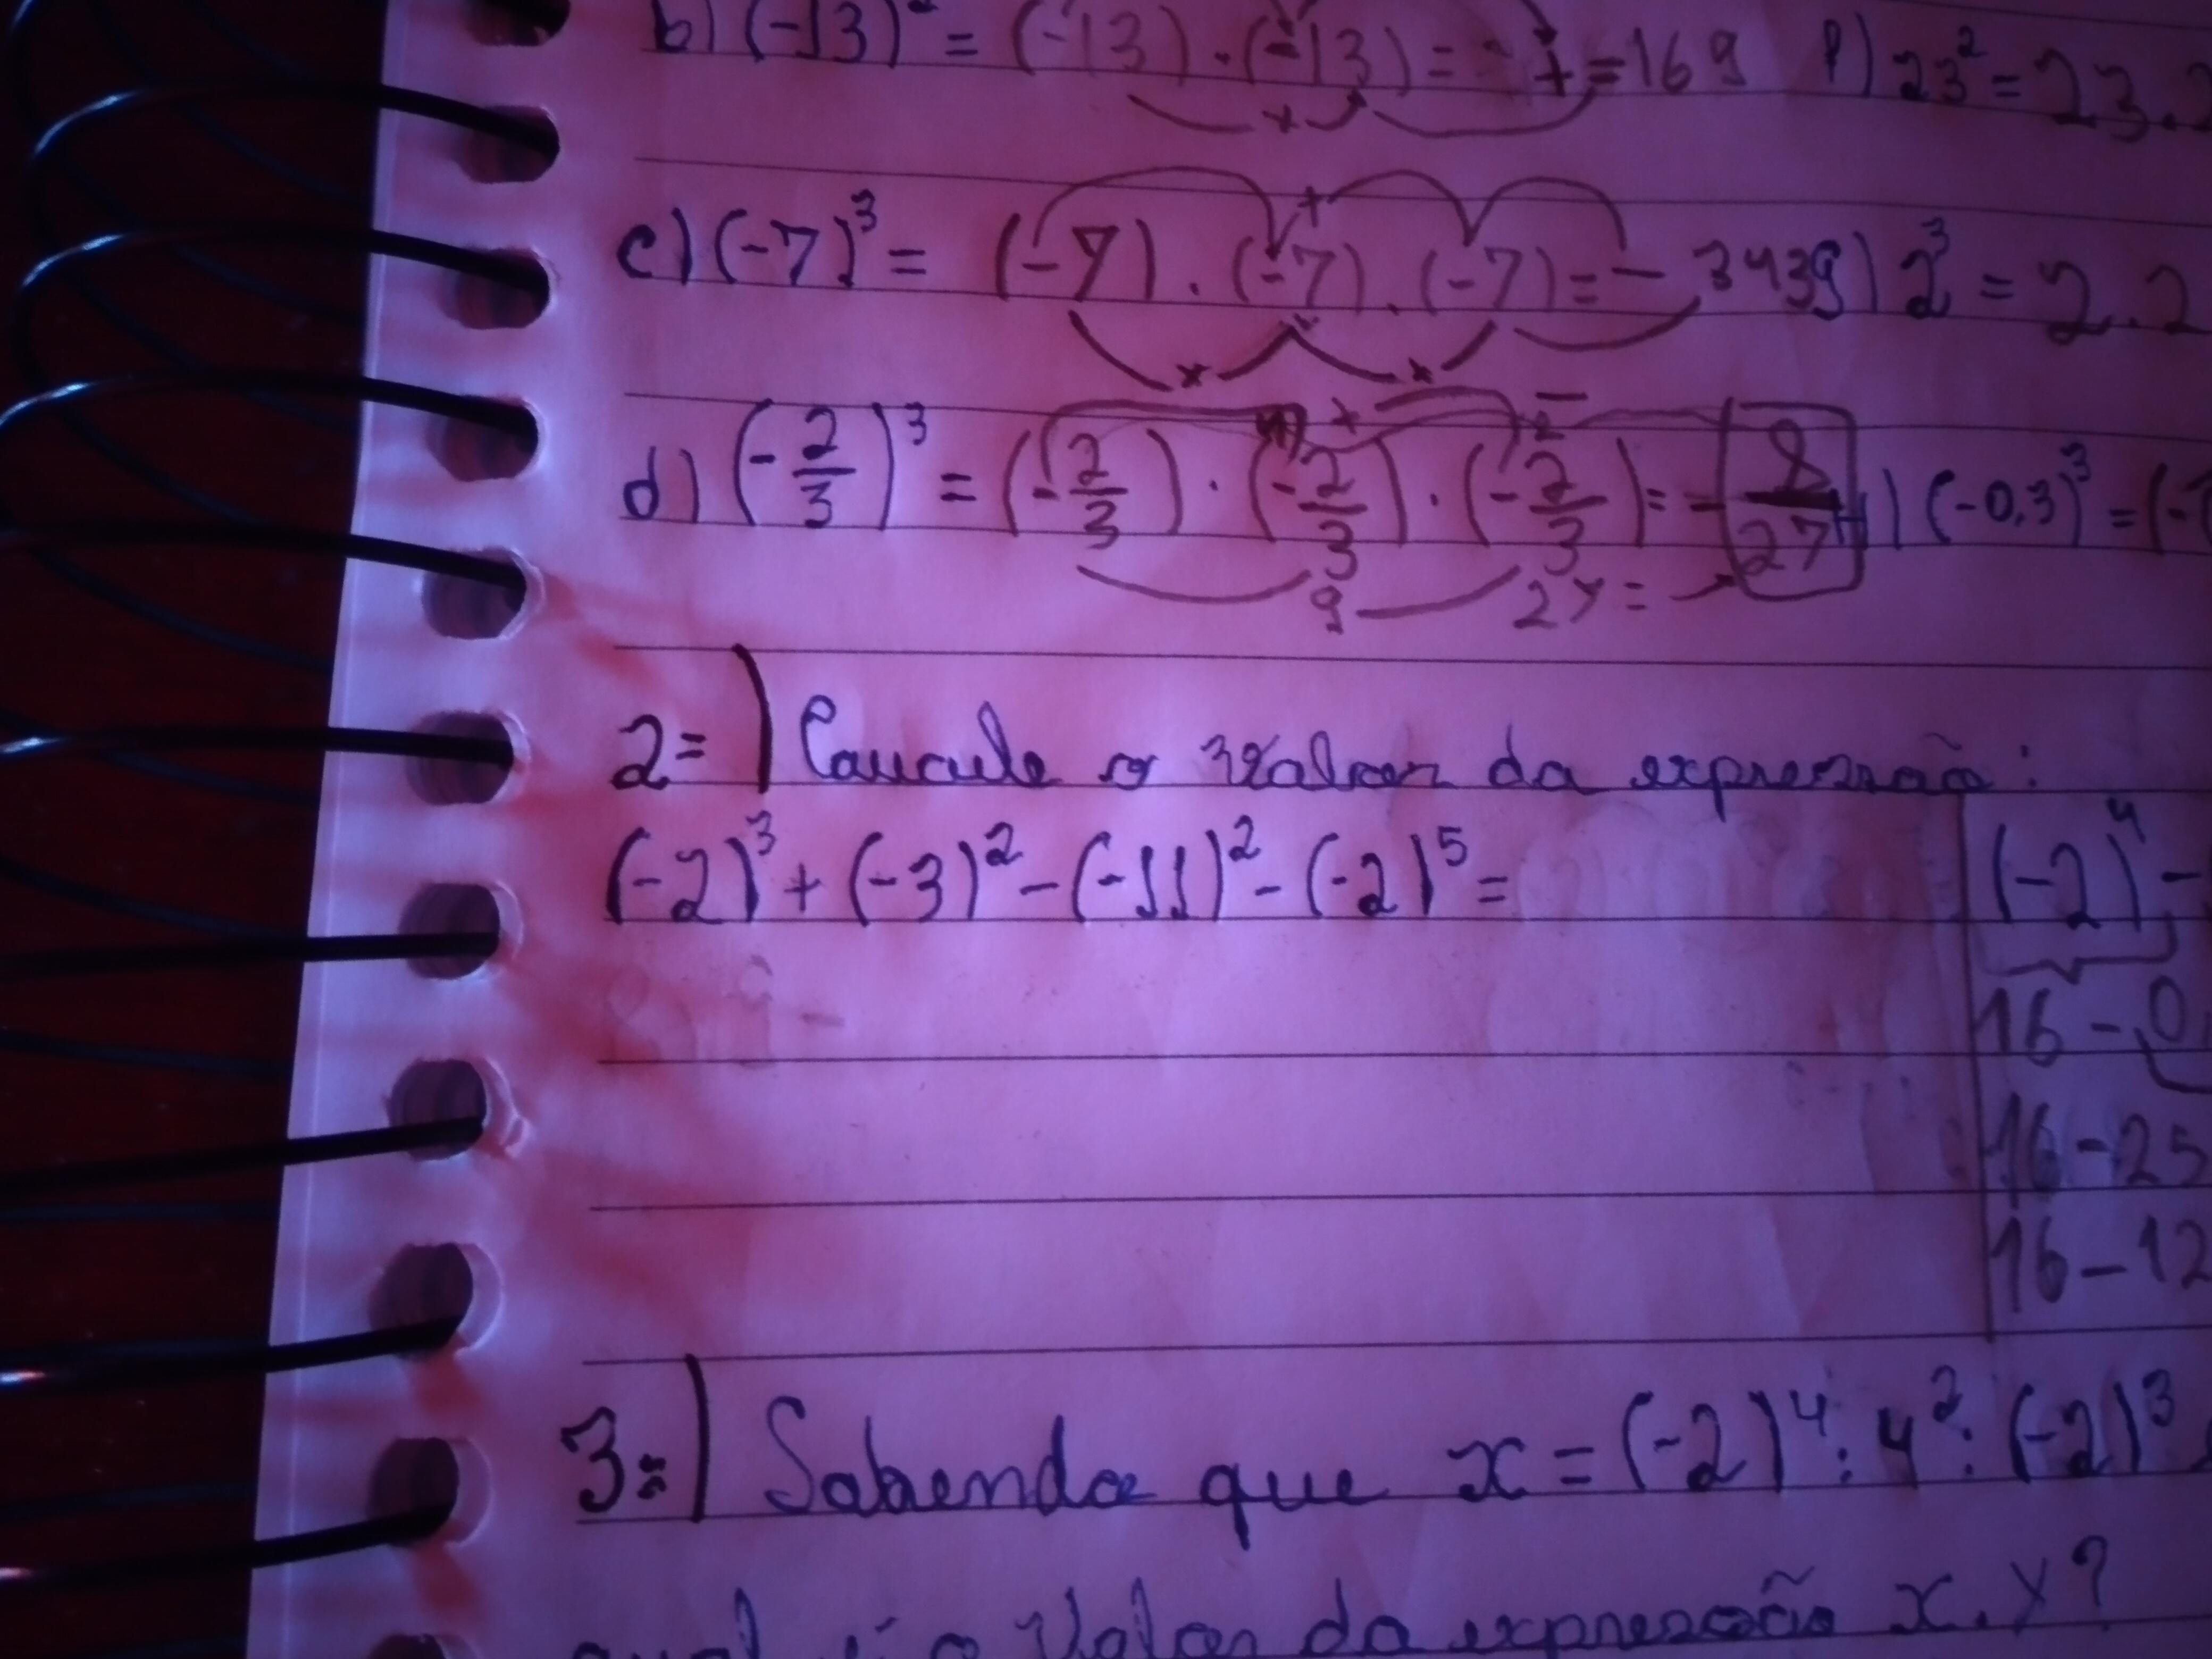 b) (-13)² = (-13).(-13) = + = 169 f) 23² = 23.2
c) (-7)³ = (-7).(-7).(-7) = - 343 g) 2³ = 2.2
d) (-2/3)³ = (-2/3).(-2/3).(-2/3) = - 8/27 H) (-0,3)³ = (-
9 27 =
2=) Caucule o valor da expressão:
(-2)³ + (-3)² - (-11)² - (-2)⁵ = (-2)⁴ -
16 - 0
16 - 25
16 - 12
3=) Sabendo que x = (-2)⁴ : 4² : (-2)³
qual é o valor da expressão x.y?